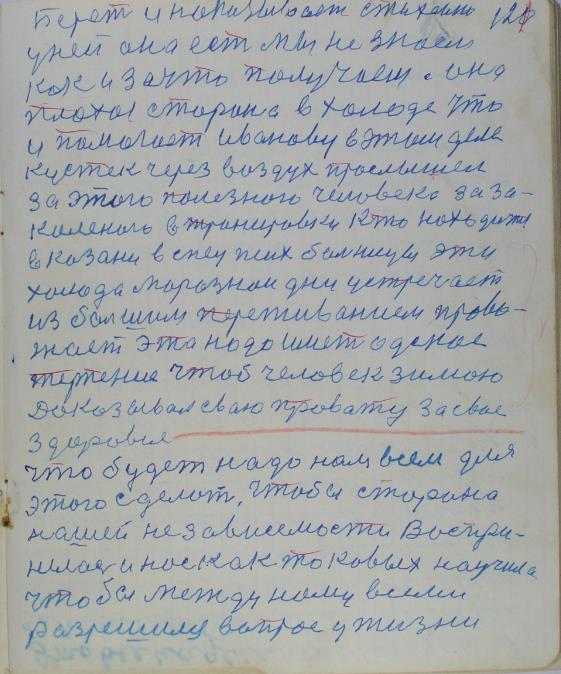 Берет и наказывает стихейно 128
у ней она ест мы не знаем
как и за что получаем. она
плохая сторона в холоде что
и помогает иванову в этом деле
кустек через воздух прослышел
за этого полезного человека за за-
каленого в транеровки Кто находится
в казани в спец псих болницы эти
холода марозном дни устречает
из болшим переживанием прова-
жает Эта надо имет адское
терпение чтоб человек зимою
Доказывал сваю правату за свае
здоровия
что будет надо нам всем для
этого сделат, чтобы сторона
нашей независемости Воспри-
нелася и нас как токовых научила
чтобы между нами всеми
разрешился вапрос у жизни